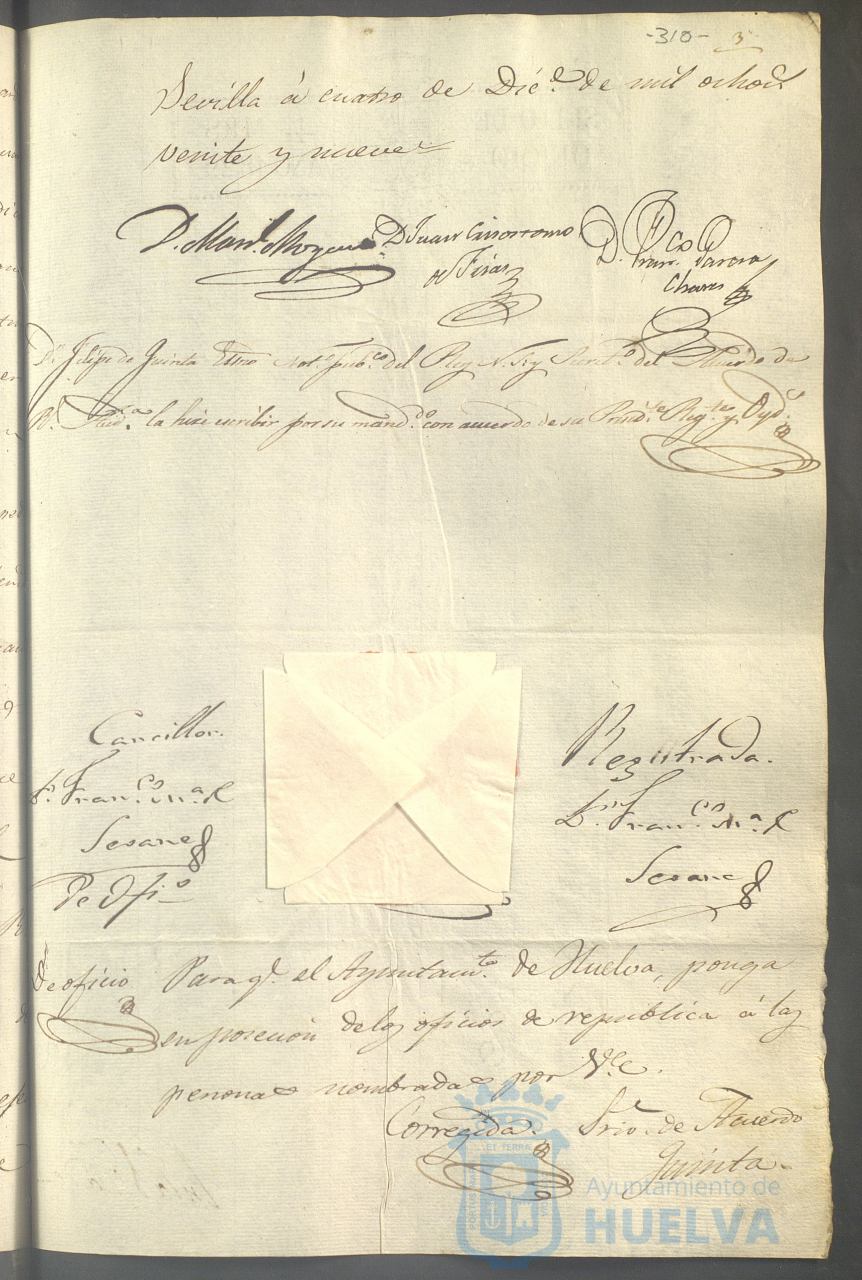 -310- 3
Sevilla á cuatro de Dic.e de mil ochos
veinte y nueve
D. Man.l D Juan Crisostomo D. Fran.co Garcia
de Chaves
D.n Felipe de Quinta Esno Not.o pub.co del Rey N. S. y Secret.o del Acuerdo de
R.l Aud.a la hise escribir por su mand.do con acuerdo de su Presid.te Reg.te y Oyd.s
Canciller. Registrada.
D.n Fran.co M.a D.n Fran.co M.a
Seoane Seoane
De Ofi.o
De oficio Para q.e el Ayuntam.to de Huelva, ponga
en posecion de los oficios de republica á las
personas nombradas por V.e
Corregida. Srio. de Acuerdo
Quinta.
PORTUS MARIS ET TERRAE
Ayuntamiento de
HUELVA